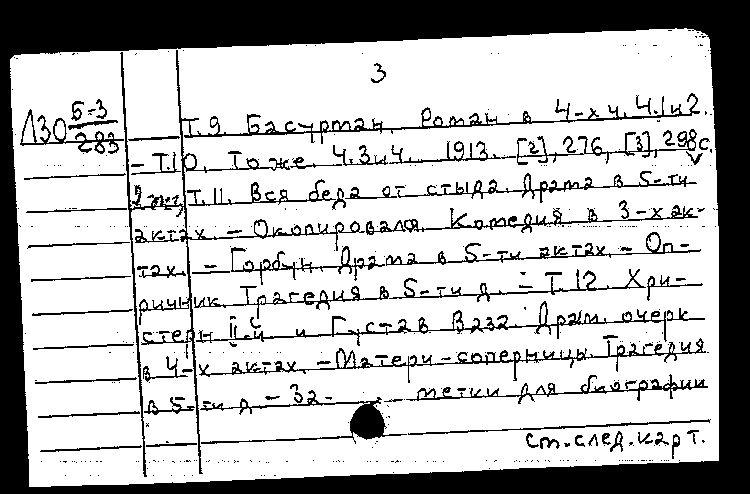 3
Л30 Б-3/283
Т.9. Басурман. Роман в 4-х ч. Ч.1и2.
– Т.10. То же. Ч.3и4. 1913. [2], 276, [3], 298с.
2 экз. Т.11. Вся беда от стыда. Драма в 5-ти
актах. – Окопировался. Комедия в 3-х ак-
тах. – Горбун. Драма в 5-ти актах. – Оп-
ричник. Трагедия в 5-ти д. – Т.12. Хри-
стерн II-й и Густав Ваза. Драм. очерк
в 4-х актах. – Матери-соперницы. Трагедия
в 5-ти д. – За- метки для биографии
См. след. карт.